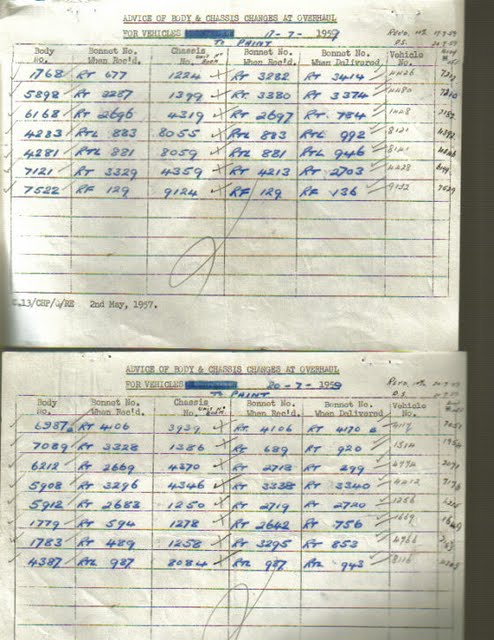 ADVICE OF BODY & CHASSIS CHANGES AT OVERHAUL
FOR VEHICLES 17-7-1959
TO PAINT
Body No. Bonnet No. When Rec'd. Chassis No. Unit No. Bonnet No. When Rec'd. Bonnet No. When Delivered Vehicle No.
1768 RT 677 1224 RT 3282 RT 3414 4426
5898 RT 3287 1399 RT 3380 RT 3374 4480
6168 RT 2696 4319 RT 2697 RT 784 1448
4283 RTL 883 8055 RTL 883 RTL 992 8121
4281 RTL 881 8059 RTL 881 RTL 946 8141
7121 RT 3329 4359 RT 4213 RT 2703 4438
7522 RF 129 9124 RF 129 RF 136 9132
.13/CHP/J/RE 2nd May, 1957.
ADVICE OF BODY & CHASSIS CHANGES AT OVERHAUL
FOR VEHICLES 20-7-1959
TO PAINT
Body No. Bonnet No. When Rec'd. Chassis No. Unit No. Bonnet No. When Rec'd. Bonnet No. When Delivered Vehicle No.
6987 RT 4106 3939 RT 4106 RT 4170
7089 RT 3328 1386 RT 689 RT 920 1514
6212 RT 2669 4270 RT 2718 RT 299 4774
5908 RT 3296 4346 RT 3338 RT 3340 4212
5912 RT 2683 1250 RT 2719 RT 2720 1256
1779 RT 594 1278 RT 2642 RT 756 1669
1783 RT 489 1258 RT 3295 RT 853 4766
4387 RTL 987 8084 RTL 987 RTL 943 8116